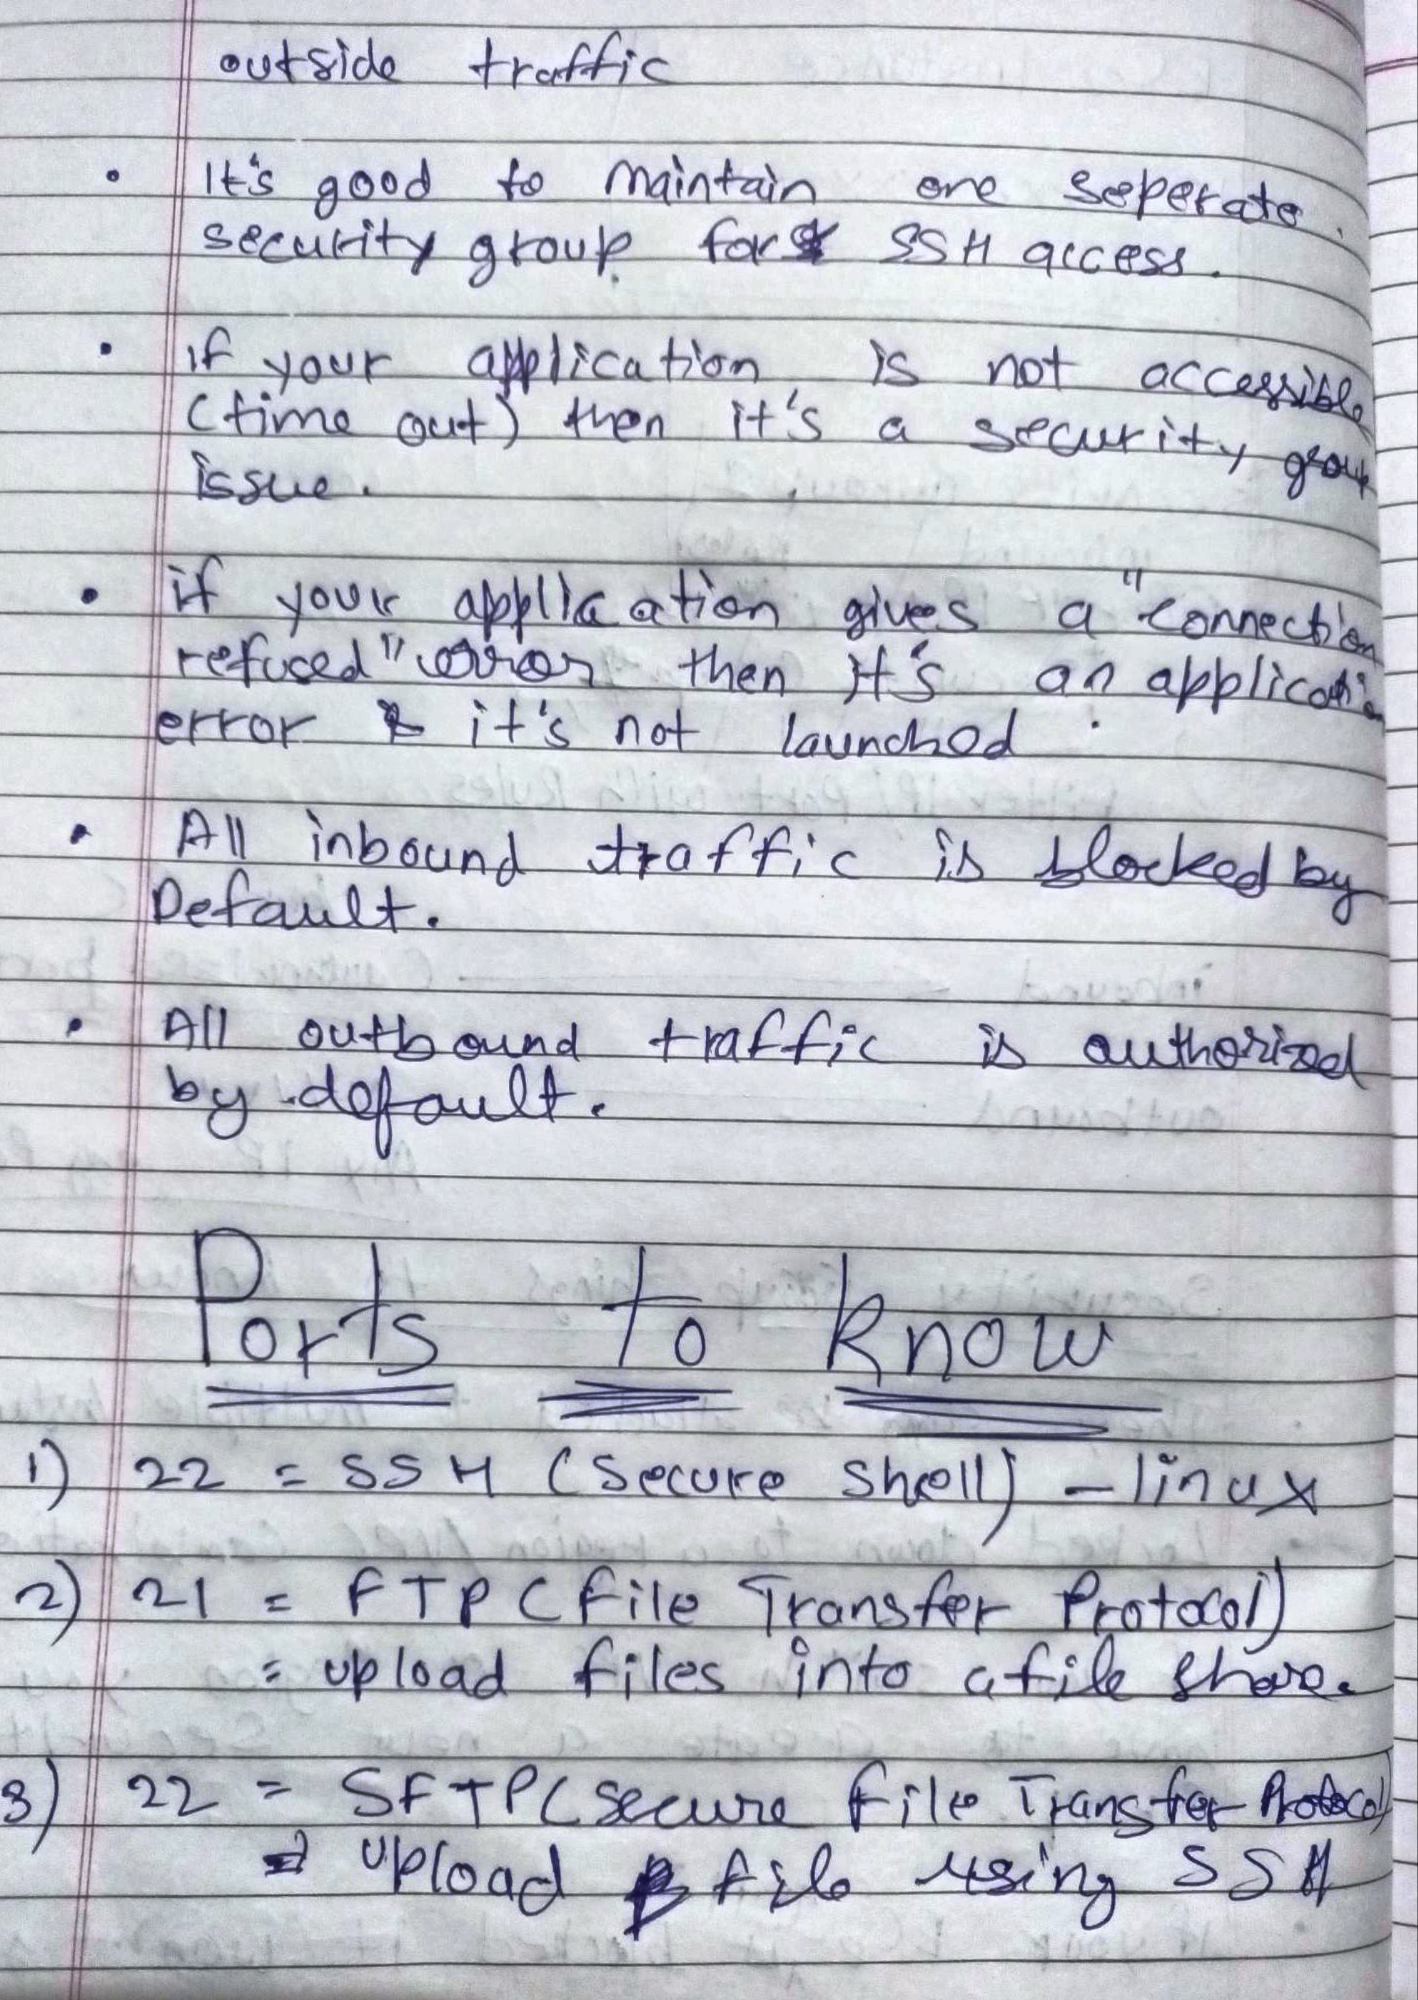 outside traffic
• It's good to maintain one seperate
security group for SSH access.
• if your application is not accessible
(time out) then it's a security group
issue.
• if your application gives a "connection
refused" error then it's an application
error & it's not launched.
• All inbound traffic is blocked by
Default.
• All outbound traffic is authorized
by default.
Ports to know
1) 22 = SSH (Secure Shell) - linux
2) 21 = FTP (File Transfer Protocol)
= upload files into a file share.
3) 22 = SFTP (Secure File Transfer Protocol)
= upload file using SSH